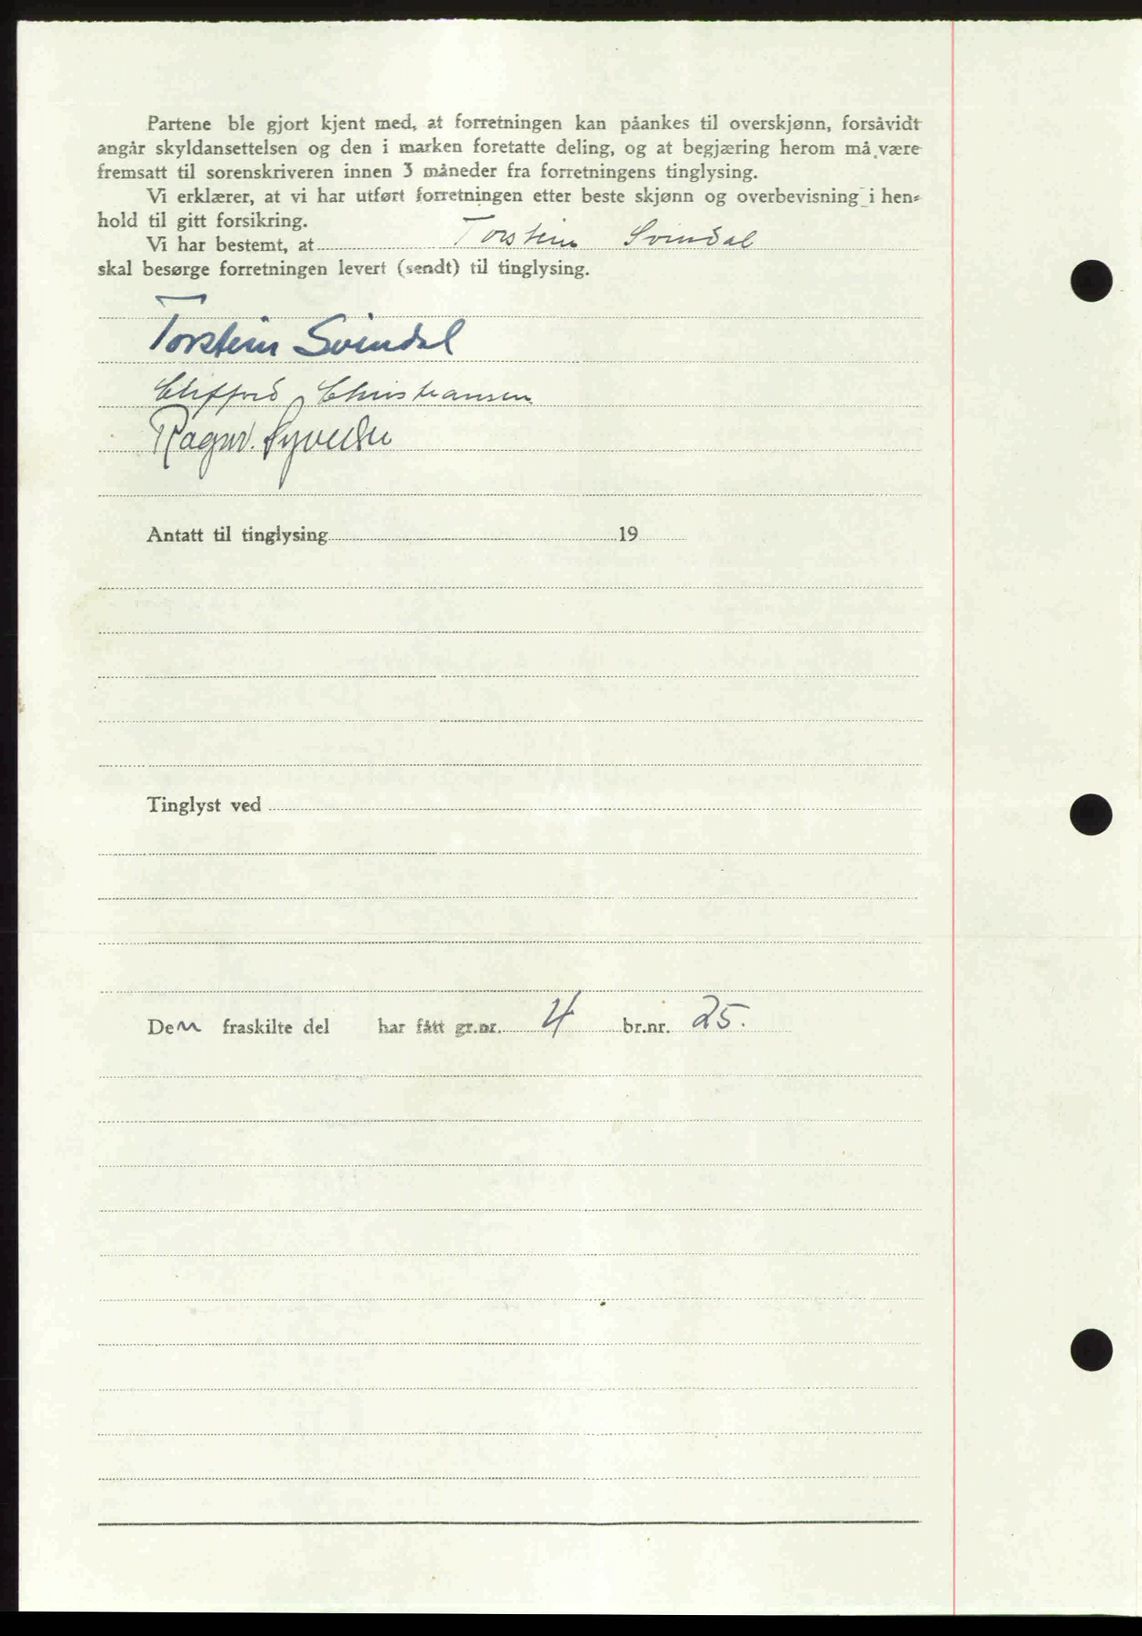 Partene ble gjort kjent med, at forretningen kan påankes til overskjønn, forsåvidt
angår skyldansettelsen og den i marken foretatte deling, og at begjæring herom må være
fremsatt til sorenskriveren innen 3 måneder fra forretningens tinglysing.
Vi erklærer, at vi har utført forretningen etter beste skjønn og overbevisning i hen-
hold til gitt forsikring.
Vi har bestemt, at Torstein Svindal
skal besørge forretningen levert (sendt) til tinglysing.
Torstein Svindal
Clifford Christiansen
Ragnv.
Antatt til tinglysing 19
Tinglyst ved
Den fraskilte del har fått gr.nr. 4 br.nr. 25.